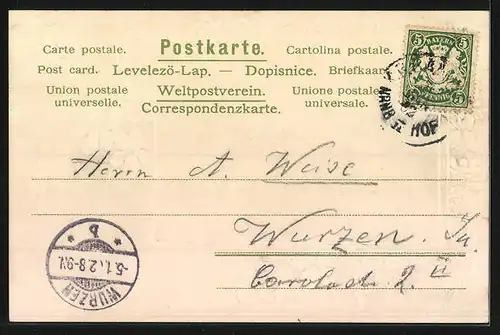 Carte postale. Postkarte. Cartolina postale.
Post card. Levelezö-Lap. — Dopisnice. Briefkaart
Union postale universelle. Weltpostverein. Unione postale universale.
Correspondenzkarte.
5 BAYERN 5
5 PFENNIG 5
HOF
Herrn A. Weise
Wurzen.
Carolastr. 2 II
b
5.1.02.8-9V.
WURZEN